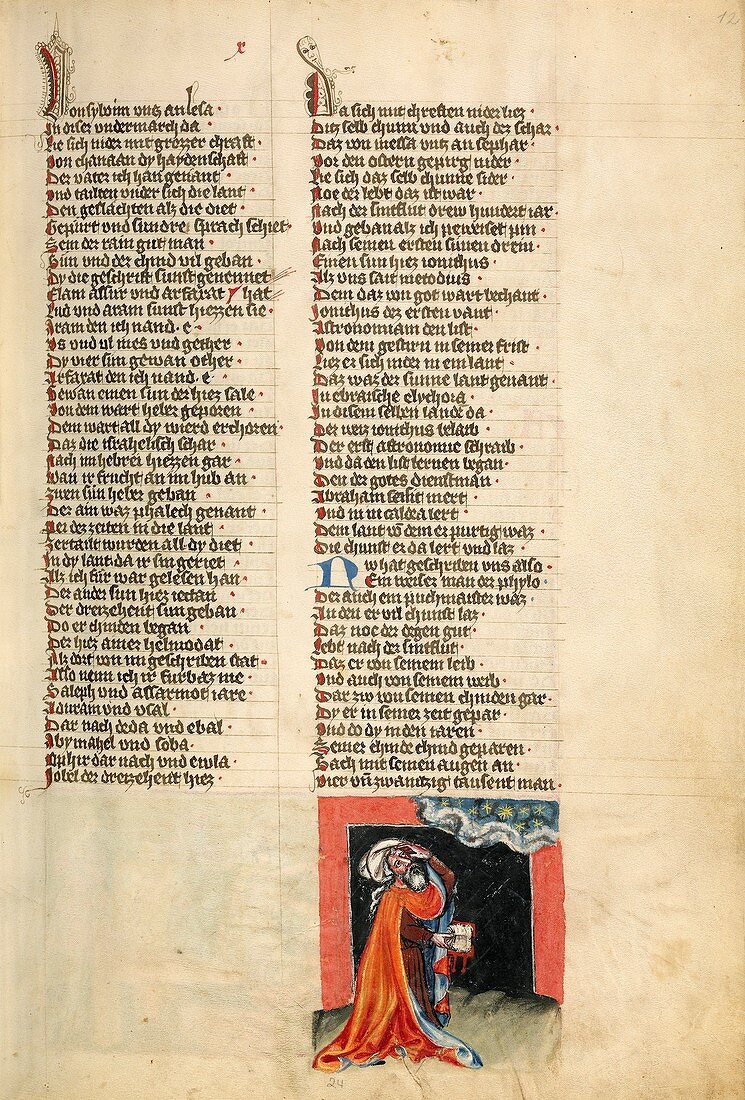 12
Von sylvim vntz an lesa ·
In diser vndermarch da ·
Lie sich nider mit grozzer chraft ·
Von chanaan dy haydenschaft ·
Der vater ich han genant ·
Vnd tailten vnder sich die lant ·
Den geslächten als die diet ·
Gepurt vnd sundre sprach schiet ·
Sem der rain gut man ·
Sun vnd der chind vil geban ·
Dy die geschrift sunst genennet
Elam assur vnd arfarat hat
Lud vnd aram sunst hiezzen sie ·
Aram den ich nand · e ·
Vs vnd vl mes vnd gether ·
Dy vier sun gewan other ·
Arfarat den ich nand · e ·
Gewan einen sun der hiez sale ·
Von dem wart heber geporen ·
Dem wart all dy wierd erchoren ·
Daz die israhelisch schar ·
Nach im hebrei hiezzen gar ·
Wan ir frucht an im hub an ·
Zwen sun heber geban ·
Der ain waz phalech genant ·
Bei der zeiten in die lant ·
Zertailt wurden all dy diet ·
In dy lant da ir sin geriet ·
Als ich fur war gelesen han ·
Der ander sun hiez iectan ·
Der dreizehent sun geban ·
Do er chinden began ·
Der hiez ainer helmodat ·
Als dort von im geschriben stat ·
Also nenn ich ir furbaz me ·
Saleph vnd assarmot iare ·
Aduram vnd vsal ·
Dar nach deda vnd ebal ·
Abymahel vnd soba ·
Ophir dar nach vnd euila ·
Jobel der dreizehent hiez ·
Da sich mit chreften nider liez ·
Ditz selb chunn vnd auch der schar ·
Daz von messa vntz an sephar ·
Vor den ostern gepirg nider ·
Lie sich daz selb chunne sider ·
Noe der lebt daz ist war ·
Nach der sintflut drew hundert iar ·
Vnd geban als ich peweiset pin ·
Nach seinen ersten sunen drein ·
Einen sun hiez ionichus ·
Als vns sait metodius ·
Dem daz von got wart bechant ·
Jonichus der ersten vant ·
Astronomiam den list ·
Von dem gestirn in seiner frist ·
Liez er sich nider in ein lant ·
Daz waz der sunne lant genant ·
In ebraische elychora ·
In disem selben lande da ·
Der weis ionichus belaib ·
Der erst astronomie schraib ·
Vnd da den list lernen began ·
Den der gotes dienstman ·
Abraham seint mert ·
Vnd in in caldea lert ·
Dem lant von dem er purtig waz ·
Die chunst er da lert vnd laz ·
Nw hat geschriben vns also ·
Ein weiser man der phylo ·
Der auch ein puchmaister waz ·
In den er vil chunst laz ·
Daz noe der degen gut ·
Lebt nach der sintflut ·
Daz er von seinem leib ·
Vnd auch von seinem weib ·
Dar zw von seinen chinden gar ·
Dy er in seiner zeit gepar ·
Vnd do dy in den iaren ·
Seiner chinde chind geparen ·
Sach mit seinen augen an ·
Vier vnd zwantzig tausent man ·
24